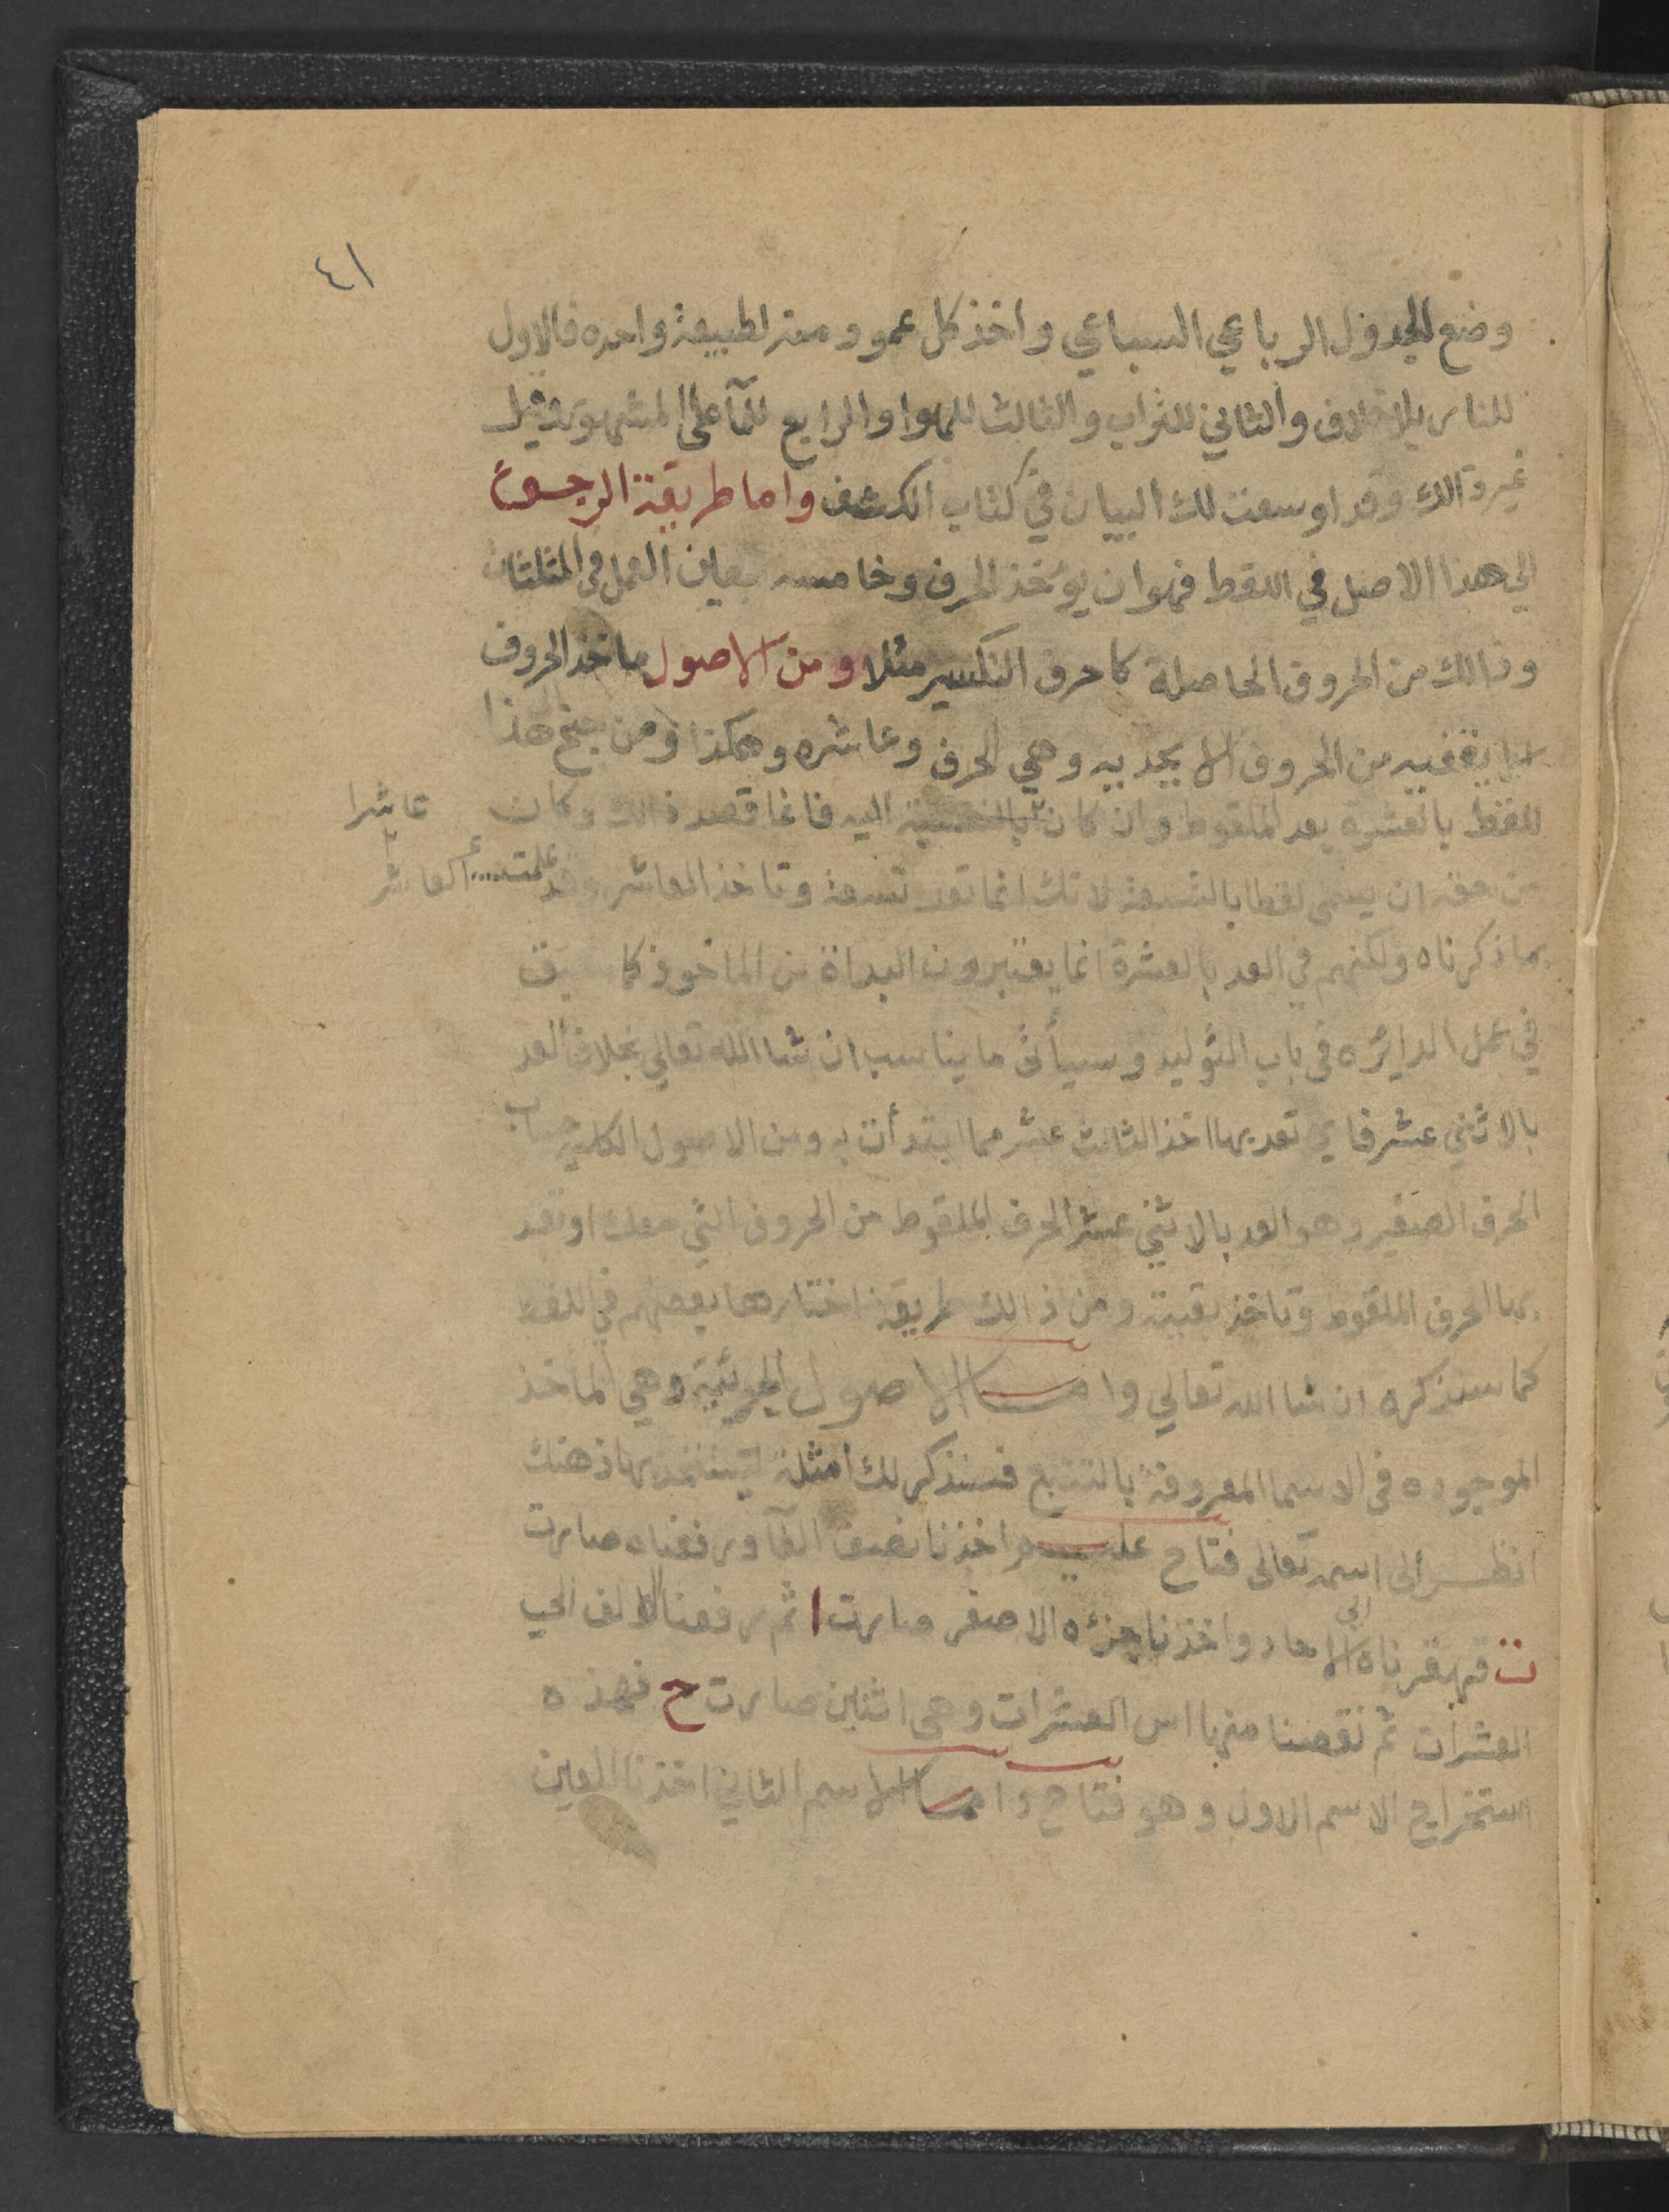 ٤١
وضع الجدول الرباعي السباعي واخذ كل عمود منه لطبيعة واحده فالاول
للنار بلا خلاف والثاني للتراب والثالث للهوا والرابع للمآ على المشهور وقيل
غير ذالك وقد اوسعت لك البيان في كتاب الكشف واما طريقة الرجعة
الي هذا الاصل في اللقط فهو ان يؤخذ الحرف وخامسه العمل في
وذالك من الحروف الحاصلة كاحرف التكسير مثلا ومن الاصول ماخذ الحروف
من الحروف الابجديه وهي الحرف وعاشره وهكذا ومن هذا
اللقط بالعشرة بعد الملقوط وان كان بالنسبة اليه فانما قصد ذالك وكان عاشرا
من حقه ان يسمى لقطا بالتسعة لانك انما تعد تسعة وتاخذ العاشر علمت العاشر
بما ذكرناه ولكنهم في العد بالعشرة انما يعتبرون البداة من الماخوذ كما سبق
في عمل الدايره في باب التوليد وسيأتى ما يناسب ان شا الله تعالي بخلاف العد
بالاثني عشر فاي تعد بها اخذ الثالث عشر مما ابتدأت به ومن الاصول الكليه حساب
الحرف الصغير وهو العد بالاثني عشر الحرف الملقوط من الحروف التي معك او تعد
بها الحرف الملقوط وتاخذ بقيته ومن ذالك طريقة اختارها بعضهم في اللقط
كما سنذكره ان شا الله تعالي واما الاصول الجزئية وهي المآخذ
الموجوده في الاسما المعروفة بالتتبع فسنذكر لك امثلة بها ذهنك
انظر الى اسمه تعالى فتاح عليم اخذنا نصف الفآ ورفعناه صارت
ت قهقرناه الى الاحاد واخذنا جزءه الاصغر صارت ا ثم رفعنا الالف الي
العشرات ثم نقصنا منها اس العشرات وهى اثنين صارت ح فهذه
استخراج الاسم الاول وهو فتاح واما الاسم الثاني اخذنا العين